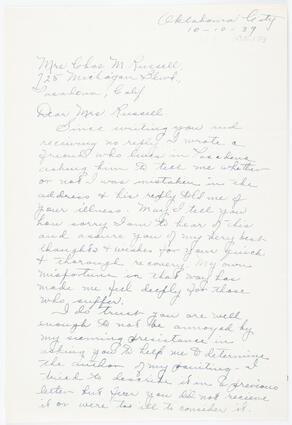 Oklahoma City
10-10-39
Mrs Chas M Russell,
725 Michagan Blvd,
Pasadena, Calif
Dear Mrs Russell
Since writing you and
receiving no reply I wrote a
friend who lives in Pasadena
asking him to tell me whether
or not I was mistaken in the
address & his reply told me of
your illness. May I tell you
how sorry I am to hear of this
and assure you of my very best
thoughts & wishes for your quick
& thorough recovery. My own
misfortune in that way has
made me feel deeply for those
who suffer.
I do trust you are well
enough to not be annoyed by
my seeming persistence in
asking you to help me to determine
the author of my painting - I
tried to describe it in a previous
letter but fear you did not receive
it or were too ill to consider it.